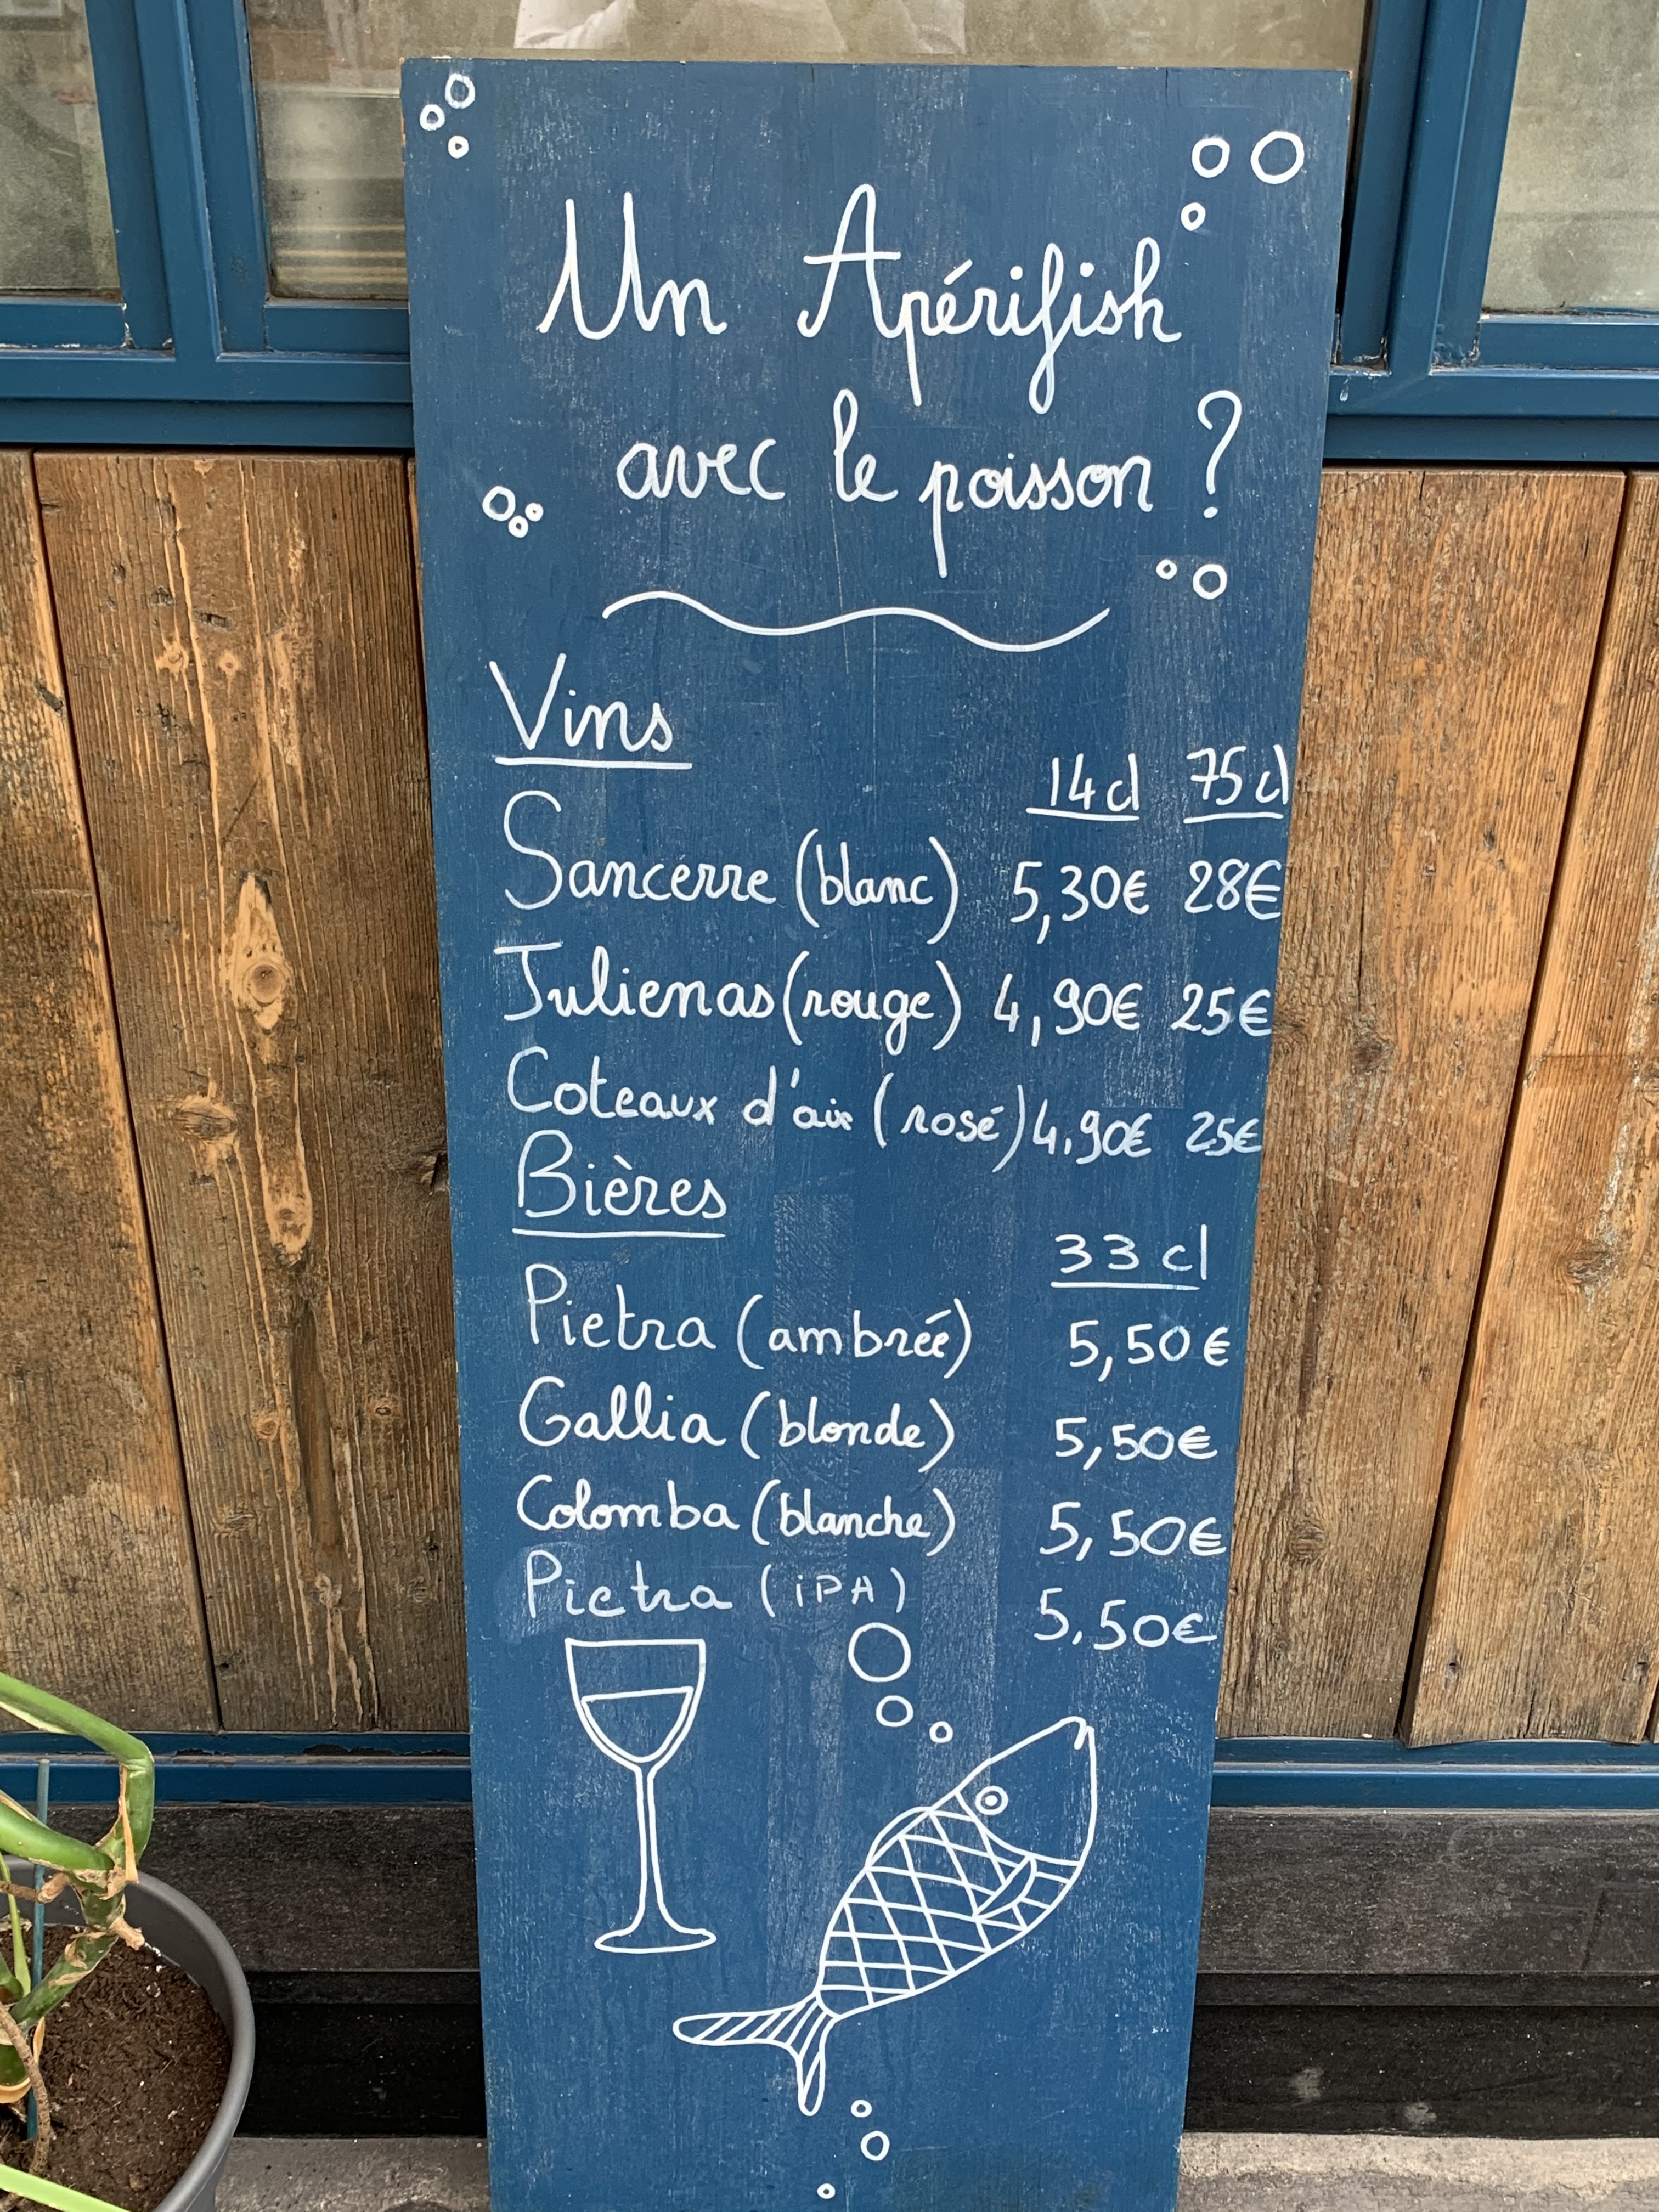 Un Apérifish
avec le poisson ?
Vins
14cl 75cl
Sancerre (blanc) 5,30€ 28€
Julienas (rouge) 4,90€ 25€
Coteaux d'aix (rosé) 4,90€ 25€
Bières
33 cl
Pietra (ambrée) 5,50€
Gallia (blonde) 5,50€
Colomba (blanche) 5,50€
Pietra (iPA) 5,50€